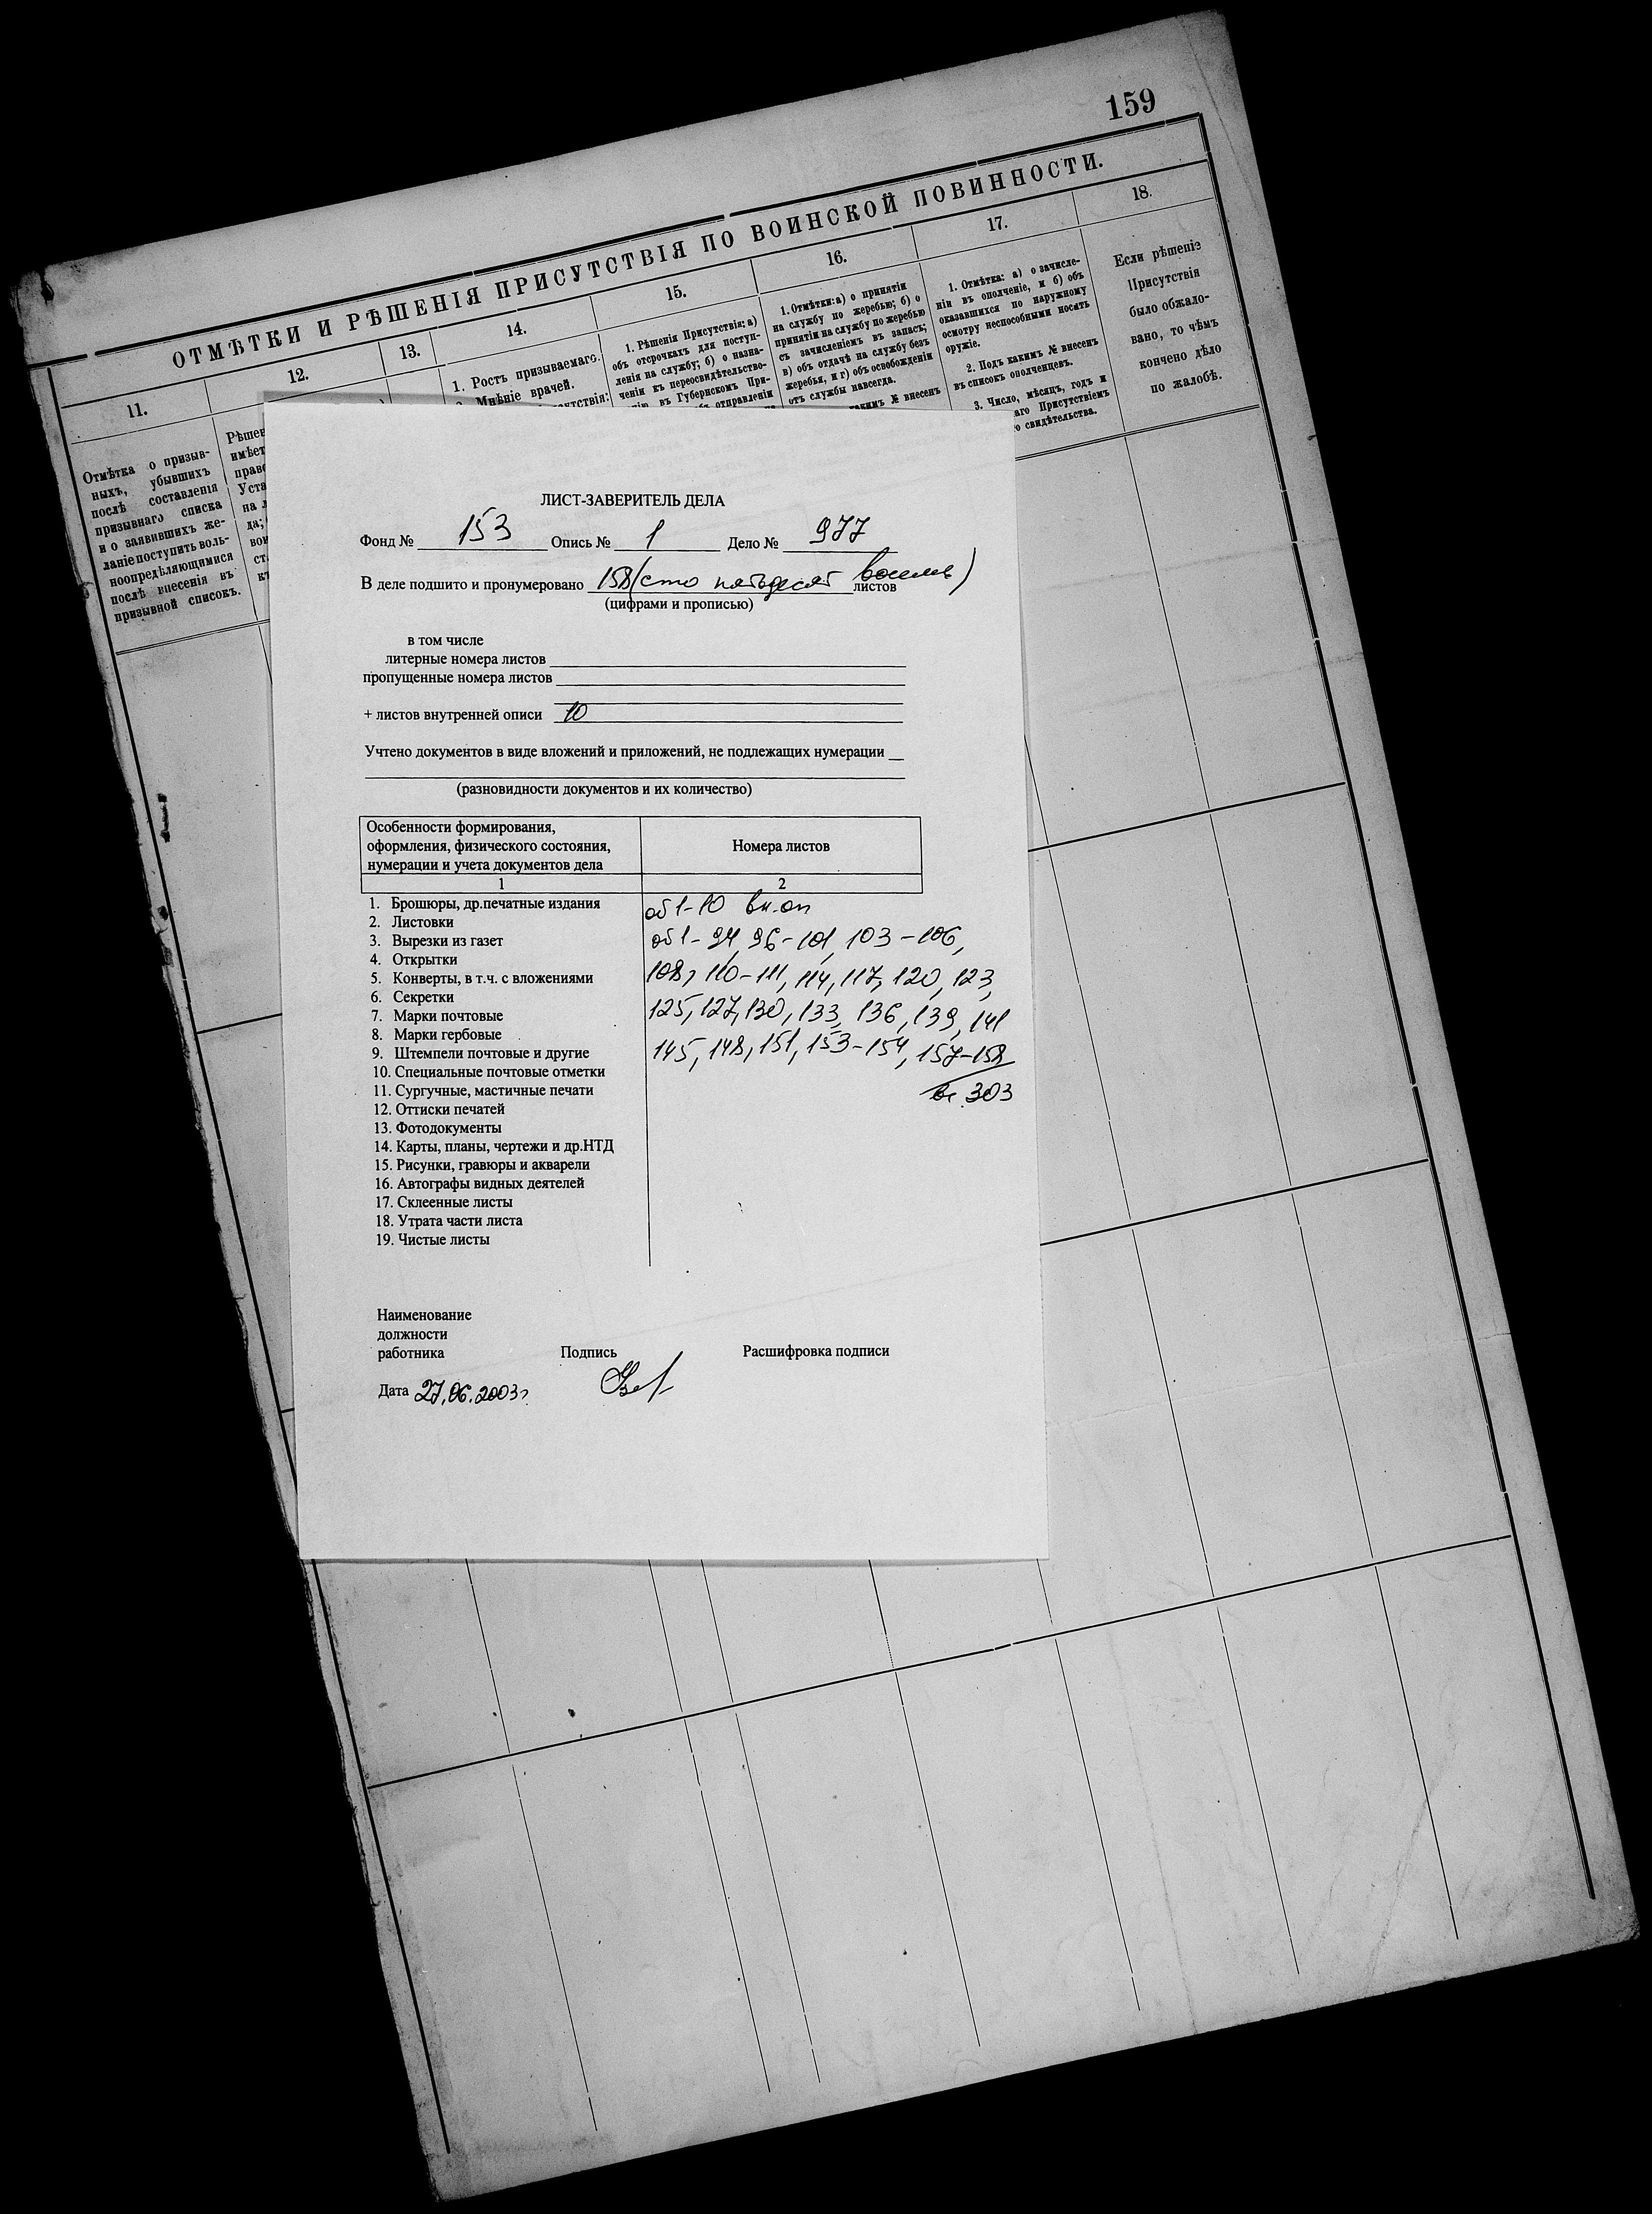 159
ОТМѢТКИ И РѢШЕНІЯ ПРИСУТСТВІЯ ПО ВОИНСКОЙ ПОВИННОСТИ.
11.
12.
13.
14.
15.
16.
17.
18.
Отмѣтка о призыв-
ныхъ, убывшихъ
послѣ составленія
призывнаго списка
и о заявившихъ же-
ланіе поступить воль-
ноопредѣляющимися
послѣ внесенія въ
призывной списокъ.
1. Ростъ призываемаго.
Мнѣніе врачей.
1. Рѣшенія Присутствія: а)
объ отсрочкахъ для поступ-
ленія на службу; б) о назна-
ченіи къ переосвидѣтельство-
въ Губернскомъ При-
отправленіи
1. Отмѣтки: а) о принятіи
на службу по жеребью; б) о
принятіи на службу по жеребью
съ зачисленіемъ въ запасъ;
в) объ отдачѣ на службу безъ
жеребья, и г) объ освобожденіи
отъ службы навсегда.
№ внесенъ
1. Отмѣтка: а) о зачисле-
ніи въ ополченіе, и б) объ
оказавшихся по наружному
осмотру неспособными носить
оружіе.
2. Подъ какимъ № внесенъ
въ списокъ ополченцевъ.
3. Число, мѣсяцъ, годъ и
Присутствіемъ
свидѣтельства.
Если рѣшеніе
Присутствія
было обжало-
вано, то чѣмъ
кончено дѣло
по жалобѣ.
ЛИСТ-ЗАВЕРИТЕЛЬ ДЕЛА
Фонд № 153 Опись № 1 Дело № 977
В деле подшито и пронумеровано 158 (сто пятьдесят восемь) листов
(цифрами и прописью)
в том числе
литерные номера листов
пропущенные номера листов
+ листов внутренней описи 10
Учтено документов в виде вложений и приложений, не подлежащих нумерации
(разновидности документов и их количество)
Особенности формирования,
оформления, физического состояния,
нумерации и учета документов дела
Номера листов
1
2
1. Брошюры, др.печатные издания
2. Листовки
3. Вырезки из газет
4. Открытки
5. Конверты, в т.ч. с вложениями
6. Секретки
7. Марки почтовые
8. Марки гербовые
9. Штемпели почтовые и другие
10. Специальные почтовые отметки
11. Сургучные, мастичные печати
12. Оттиски печатей
13. Фотодокументы
14. Карты, планы, чертежи и др.НТД
15. Рисунки, гравюры и акварели
16. Автографы видных деятелей
17. Склеенные листы
18. Утрата части листа
19. Чистые листы
об 1-10 вн.оп
об 1-94, 96-101, 103-106,
108, 110-111, 114, 117, 120, 123,
125, 127, 130, 133, 136, 139, 141
145, 148, 151, 153-154, 157-158
303
Наименование
должности
работника
Подпись
Расшифровка подписи
Дата 27.06.2003г